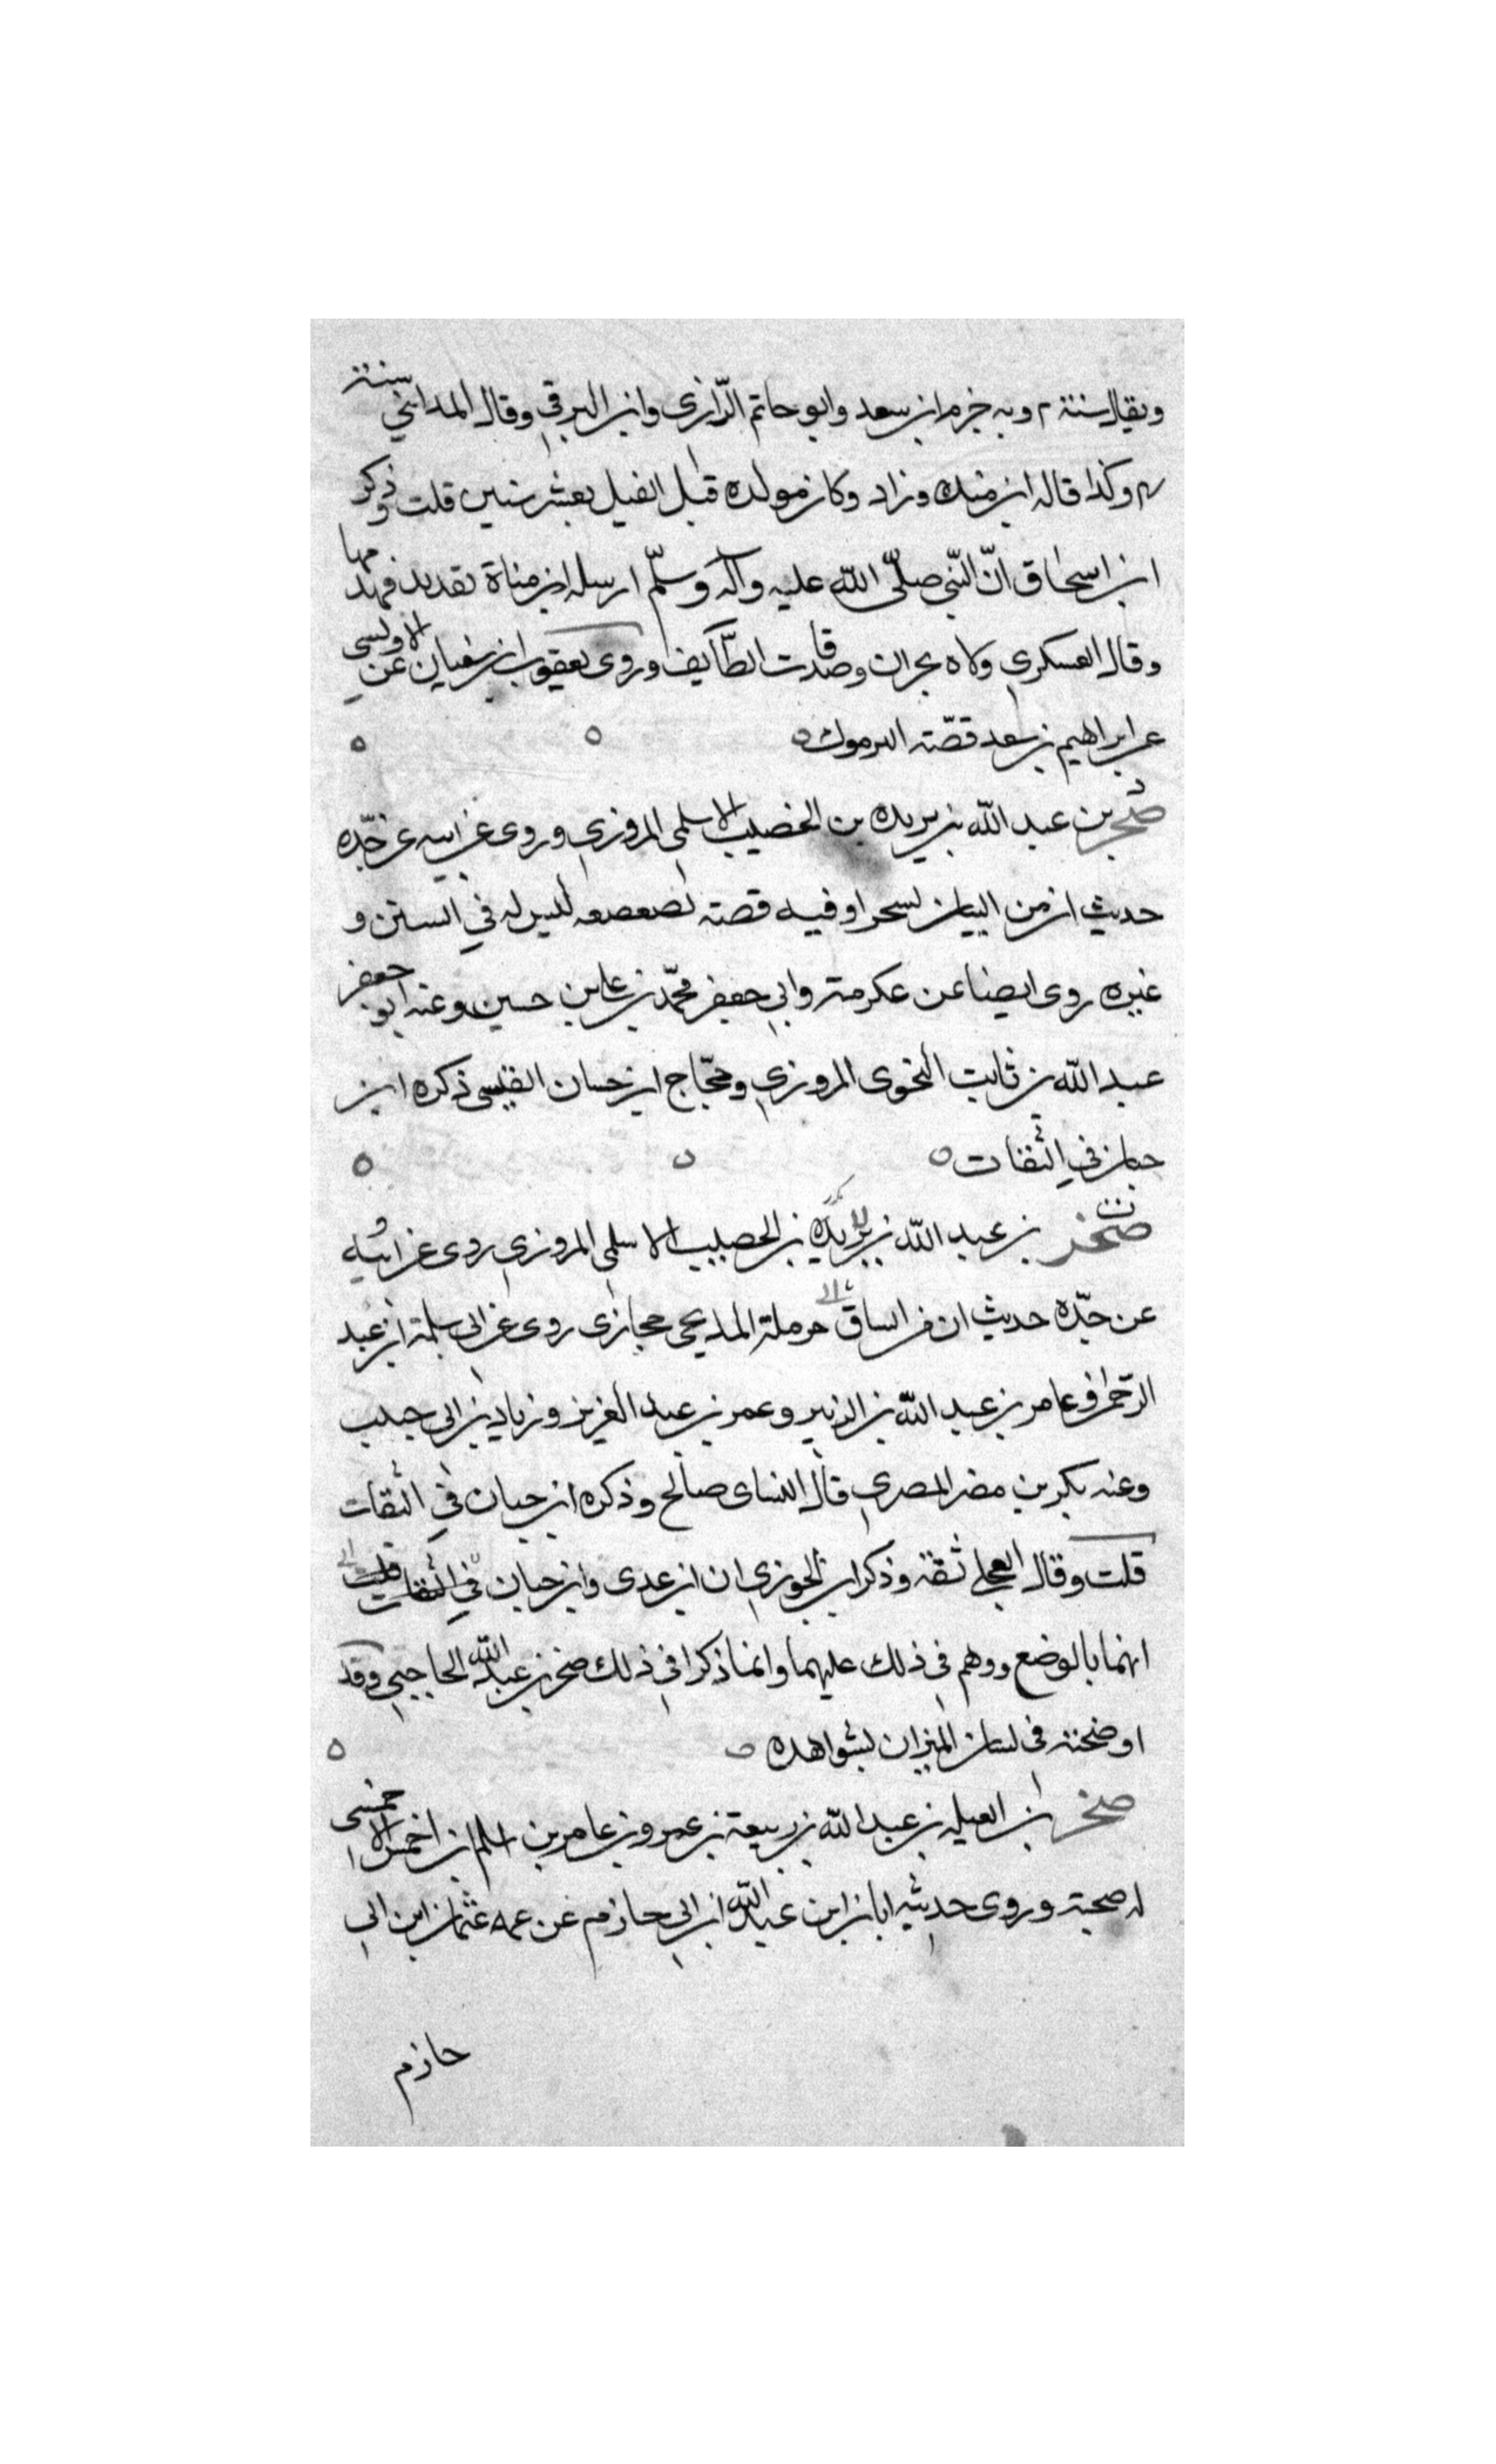 ويقال سنة ٢ وبه جزم ابن سعد وابو حاتم الرّازى وابن البرقى وقال المدائنى سنة
٣ وكذا قاله ابن منده وزاد وكان مولده قبل الفيل بعشر سنين قلت وذكر
ابن اسحاق انّ النّبى صلّى اللّه عليه وآله وسلّم ارسله الى مناة بقديد فهدمها
وقال العسكرى ولاه نجران وصدقات الطّايف وروى يعقوب ابن سفيان عن الاويسى
عن ابراهيم بن سعد قصّته اليرموك
صخر بن عبد اللّه بن بريده بن الخصيب الاسلمى المروزى وروى عن ابيه عن جّده
حديث ان من البيان لسحرا وفيه قصته لصعصعه ليس له فى السنن و
غيره روى ايضا عن عكرمة وابى جعفر محمّد بن على بن حسين وعنه ابو جعفر
عبد اللّه بن ثابت النحوى المروزى وحجّاج ابن حسان القيسى ذكره ابن
حبان فى الثقات
صخر بن عبد اللّه بن بريده بن الحصيب الاسلمى المروزى روى عن ابيه
عن جدّه حديث ان من الساق حرملة المدلجى حجازى روى عن ابى سلمة ابن عبد
الرّحمن وعامر بن عبد اللّه بن الزبير وعمر بن عبد العزيز وزياد بن ابى حبيب
وعنه بكر بن مضر المصرى قال النساى صالح وذكره ابن حبان فى الثقات
قلت وقال العجلى ثقة وذكر ابن الجوزى ان ابن عدى وابن حبان فى الثقات قلت
اتهما بالوضع ووهم فى ذلك عليهما وانما ذكرا فى ذلك صخر بن عبد اللّه الحاجبى وقد
اوضحته فى لسان الميزان بشواهده
صخر ابن العيله بن عبد اللّه بن ربيعة بن عمرو بن عامر بن اسلم ابن احمس الاحمسى
له صحبة وروى حديثه ابان ابن عبد اللّه ابن ابى حازم عن عمه عثمان ابن ابى
حازم